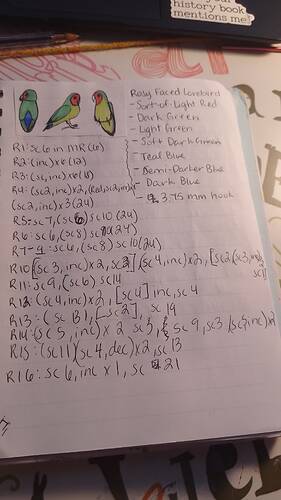 history book
mentions me!
Rosy Faced Lovebird
- Sort-of-Light Red
- Dark Green
- Light Green
- Soft Dark Green
- Teal Blue
- Semi-Darker Blue
- Dark Blue
- 3.75 mm hook
R1: sc 6 in MR (6)
R2: (inc)x6 (12)
R3: (sc, inc)x6 (18)
R4: (sc2, inc)x2,
(sc2, inc)x3 (24)
R5: sc 7, (sc6) sc10 (24)
R6: sc 6, (sc8) sc10 (24)
R7-9: sc6, (sc8) sc10 (24)
R10 [sc3, inc)x2, sc2] (sc4, inc)x2, [sc2(sc3,
R11: sc 9, (sc6) sc14
R12: (sc4, inc)x2, [sc4] inc, sc4
R13: (sc 13), [sc2], sc 19
R14: (sc 5, inc) x 2 sc5, sc 9, sc3 (sc5, inc)x2
R15: (sc11) (sc 4, dec)x2, sc13
R16: sc 6, inc x 1, sc 21